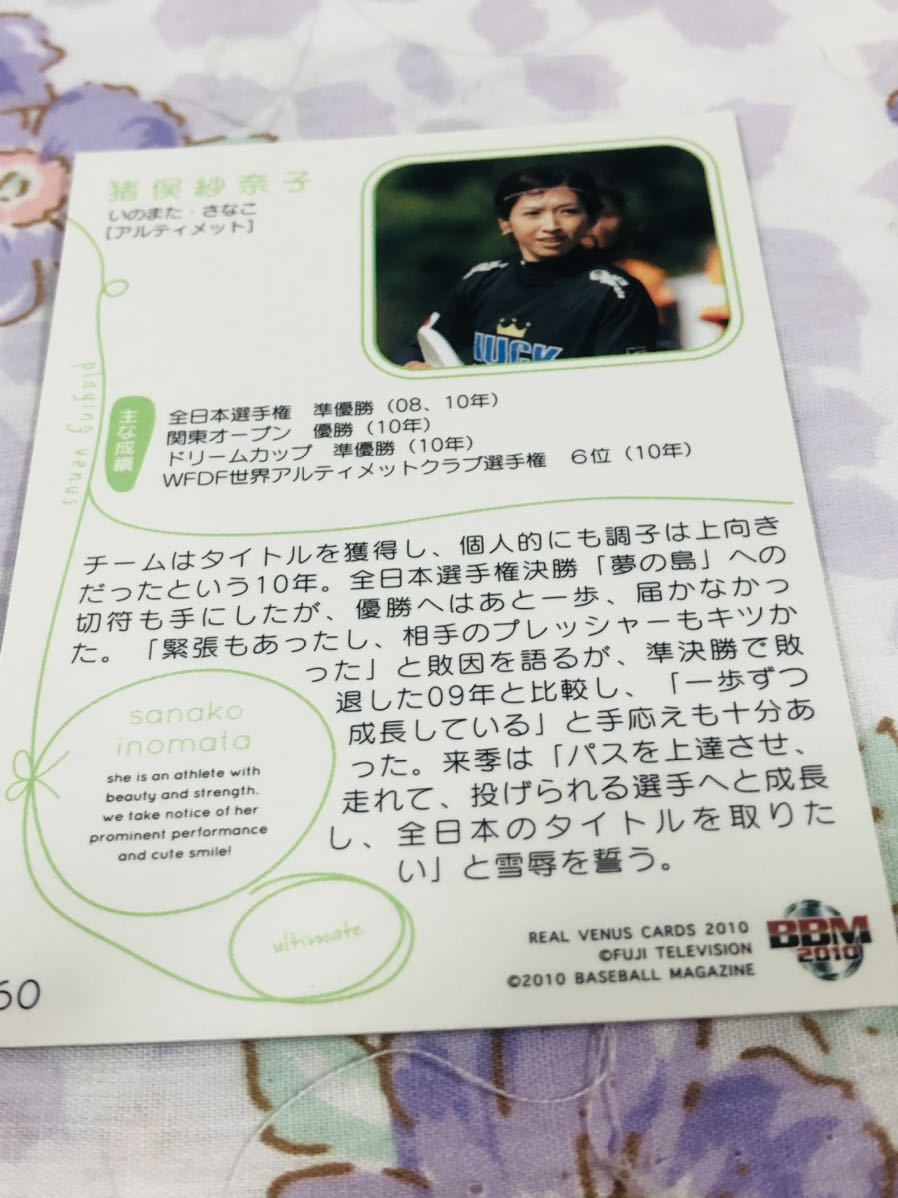 猪俣紗奈子
いのまた・さなこ
[アルティメット]
playing venus
主な成績
全日本選手権 準優勝（08、10年）
関東オープン 優勝（10年）
ドリームカップ 準優勝（10年）
WFDF世界アルティメットクラブ選手権 6位（10年）
チームはタイトルを獲得し、個人的にも調子は上向き
だったという10年。全日本選手権決勝「夢の島」への
切符も手にしたが、優勝へはあと一歩、届かなかっ
た。「緊張もあったし、相手のプレッシャーもキツか
った」と敗因を語るが、準決勝で敗
退した09年と比較し、「一歩ずつ
成長している」と手応えも十分あ
った。来季は「パスを上達させ、
走れて、投げられる選手へと成長
し、全日本のタイトルを取りた
い」と雪辱を誓う。
sanako
inomata
she is an athlete with
beauty and strength.
we take notice of her
prominent performance
and cute smile!
ultimate
REAL VENUS CARDS 2010
©FUJI TELEVISION
©2010 BASEBALL MAGAZINE
BBM
2010
60